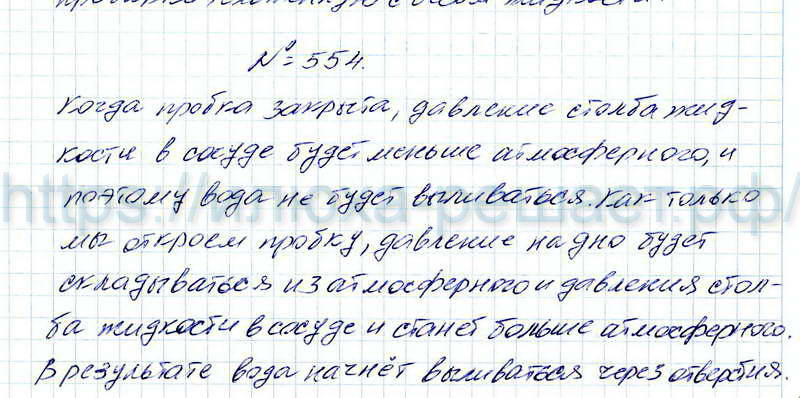 № 554.
Когда пробка закрыта, давление столба жид-
кости в сосуде будет меньше атмосферного, и
поэтому вода не будет выливаться. Как только
мы откроем пробку, давление на дно будет
складываться из атмосферного и давления стол-
ба жидкости в сосуде и станет больше атмосферного.
В результате вода начнёт выливаться через отверстия.